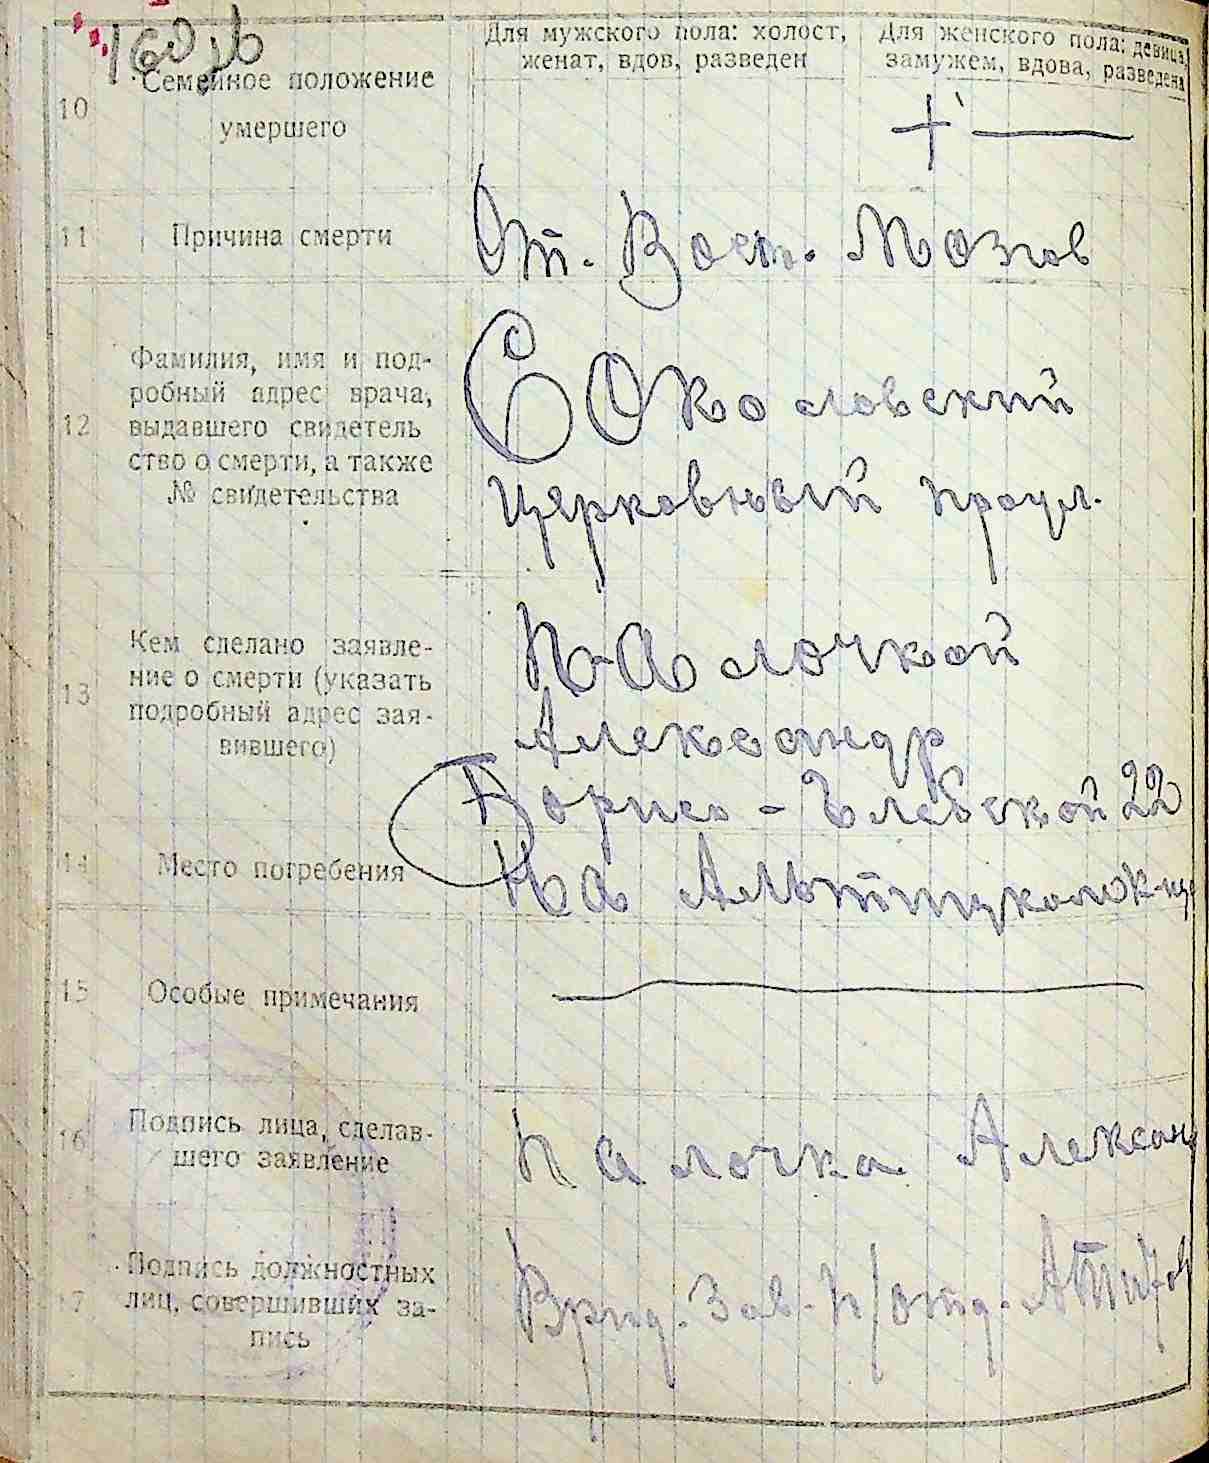 10
Семейное положение
умершего
Для мужского пола: холост,
женат, вдов, разведен
Для женского пола: девица,
замужем, вдова, разведена
+ —
11
Причина смерти
От. Восп. Мозгов
12
Фамилия, имя и под-
робный адрес врача,
выдавшего свидетель
ство о смерти, а также
№ свидетельства
Соколовский
Церковный проул.
13
Кем сделано заявле-
ние о смерти (указать
подробный адрес зая-
вившего)
Палочкой
Александр
Борисо-Глебской 22
14
Место погребения
На
15
Особые примечания
16
Подпись лица, сделав-
шего заявление
Палочка Алексан
17
Подпись должностных
лиц, совершивших за-
пись
Врид. Зав. П/отд.